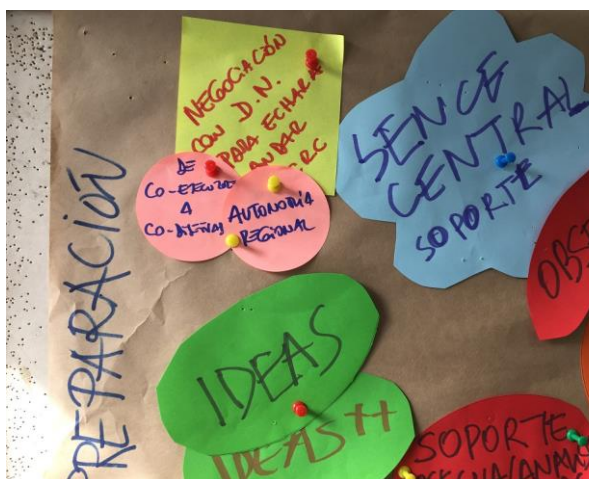 PREPARACIÓN
NEGOCIACIÓN
CON D.N.
PARA ECHAR A
ANDAR
DE
A
AUTONOMÍA
REGIONAL
SENCE
CENTRAL
SOPORTE
IDEAS
IDEAS ++
SOPORTE